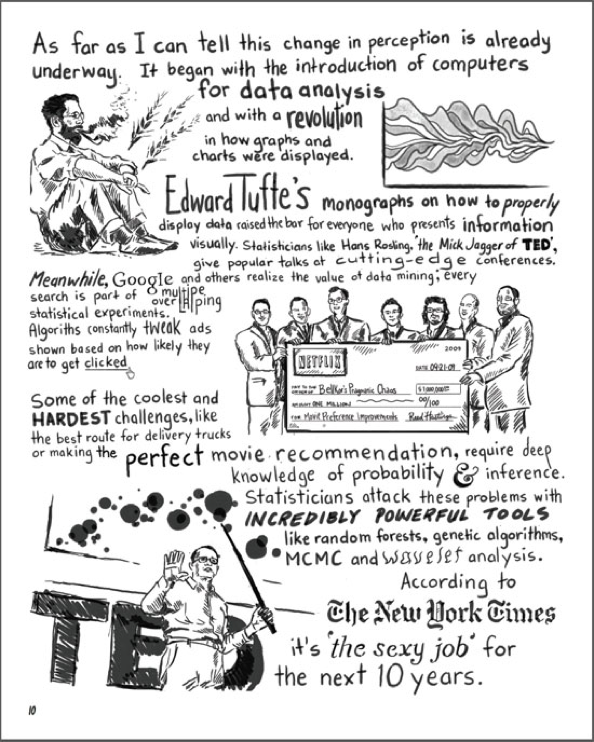 As far as I can tell this change in perception is already
underway. It began with the introduction of computers
for data analysis
and with a revolution
in how graphs and
charts were displayed.
Edward Tufte's monographs on how to properly
display data raised the bar for everyone who presents information
visually. Statisticians like Hans Rosling, 'the Mick Jagger of TED',
give popular talks at cutting-edge conferences.
Meanwhile, Google and others realize the value of data mining; every
search is part of multiple overlapping
statistical experiments.
Algoriths constantly tweak ads
shown based on how likely they
are to get clicked
NETFLIX
2009
DATE 09-21-09
PAY TO THE ORDER OF BellKor's Pragmatic Chaos
AMOUNT ONE MILLION 00/100
FOR Movie Preference Improvements Reed Hastings
Some of the coolest and
HARDEST challenges, like
the best route for delivery trucks
or making the perfect movie recommendation, require deep
knowledge of probability & inference.
Statisticians attack these problems with
INCREDIBLY POWERFUL TOOLS
like random forests, genetic algorithms,
MCMC and wavelet analysis.
According to
The New York Times
it's 'the sexy job' for
the next 10 years.
TED
10